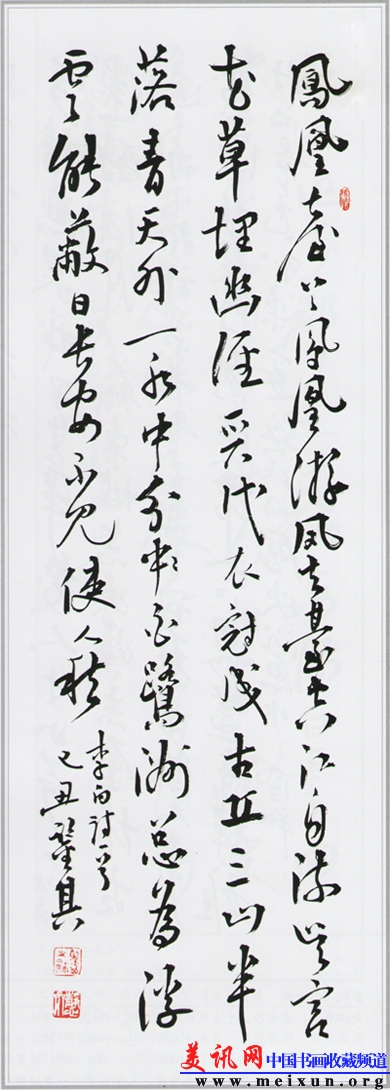 鳳凰台上鳳凰游鳳去臺空江自流吳宮
花草埋幽徑晉代衣冠成古丘三山半
落青天外一水中分白鷺洲總為浮
雲能蔽日長安不見使人愁
李白詩一首
己丑
美讯网 中国书画收藏频道
www.meixun.org